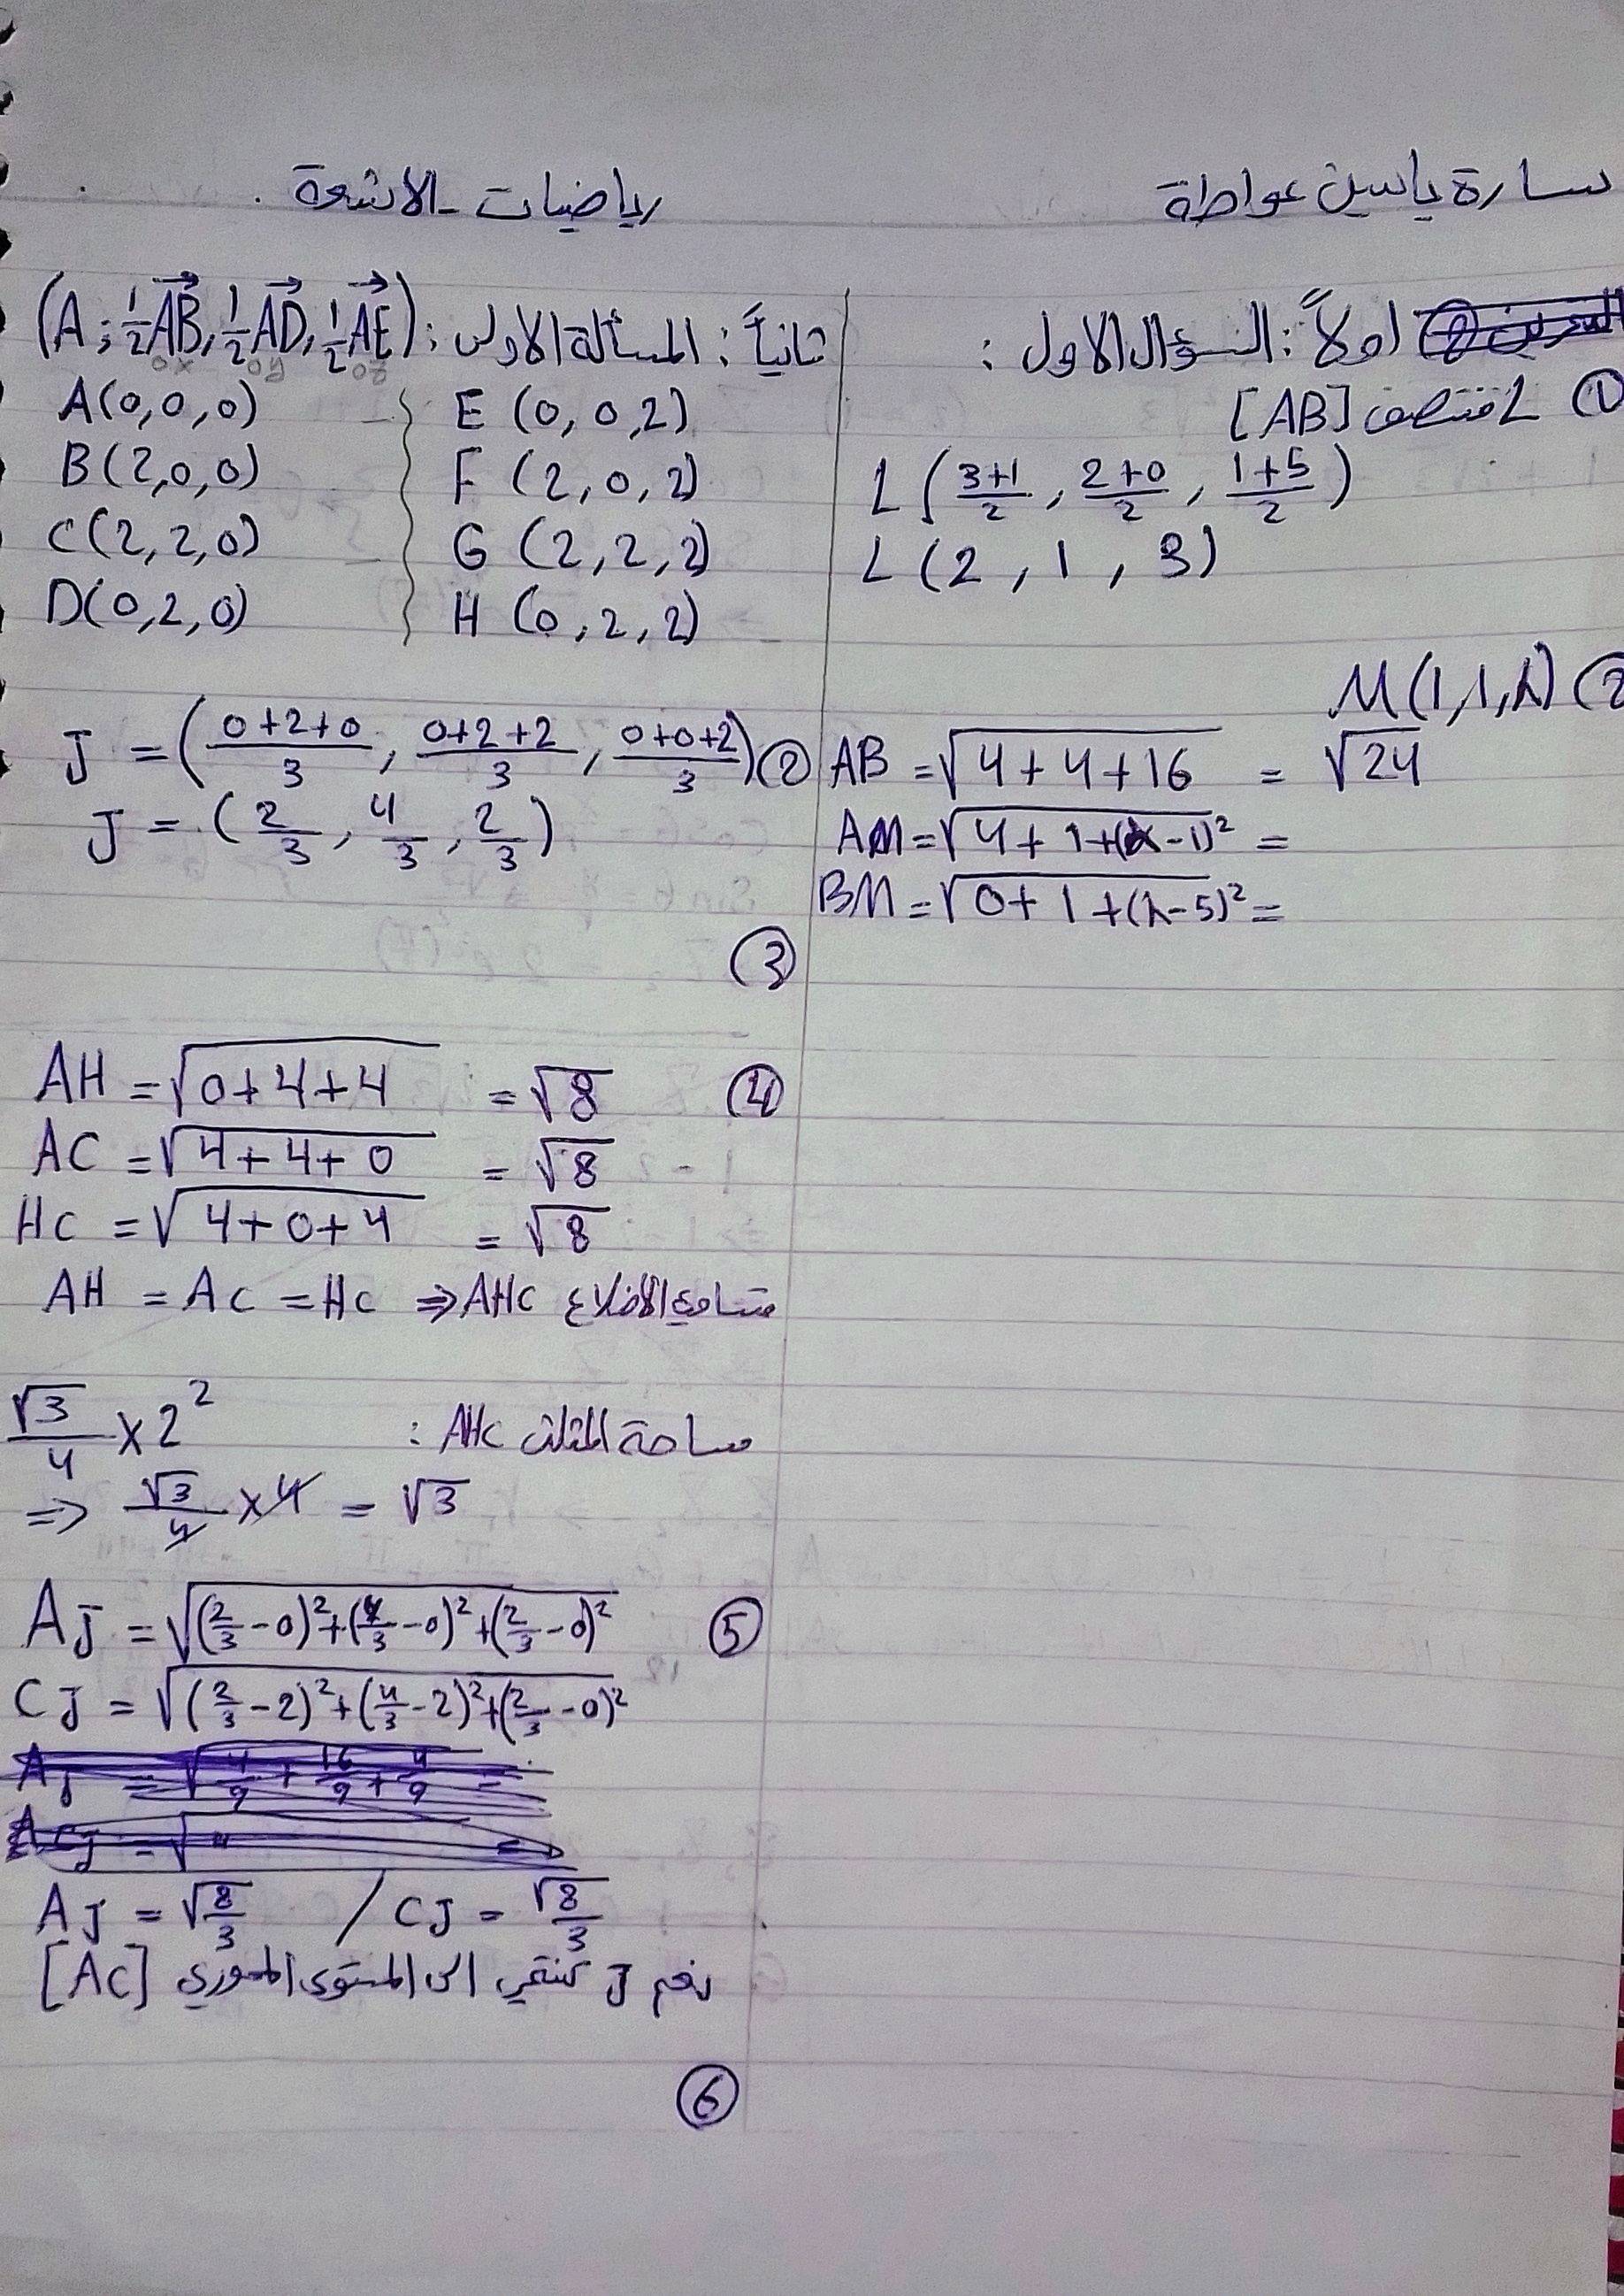 سارة ياسين عواطة
رياضيات - الاشعة.
اولاً: السؤال الاول:
① L منتصف [AB]
L (3+1/2, 2+0/2, 1+5/2)
L (2, 1, 3)
② M(1,1,λ)
AB = √4+4+16 = √24
AM = √4+1+(λ-1)² =
BM = √0+1+(λ-5)² =
ثانياً: المسألة الاولى: (A; 1/2 AB, 1/2 AD, 1/2 AE)
ox oy oz
A(0,0,0) E (0,0,2)
B(2,0,0) F (2,0,2)
C(2,2,0) G (2,2,2)
D(0,2,0) H (0,2,2)
② J = (0+2+0/3, 0+2+2/3, 0+0+2/3)
J = (2/3, 4/3, 2/3)
③
④ AH = √0+4+4 = √8
AC = √4+4+0 = √8
HC = √4+0+4 = √8
AH = AC = HC ⇒ AHC متساوي الاضلاع
مساحة المثلث AHC : √3/4 × 2²
⇒ √3/4 × 4 = √3
⑤ AJ = √(2/3-0)²+(4/3-0)²+(2/3-0)²
CJ = √(2/3-2)²+(4/3-2)²+(2/3-0)²
AJ = √4/9+16/9+4/9 =
AJ = √8/3 / CJ = √8/3
نعم J تنتمي الى المستوى المحوري [AC]
⑥